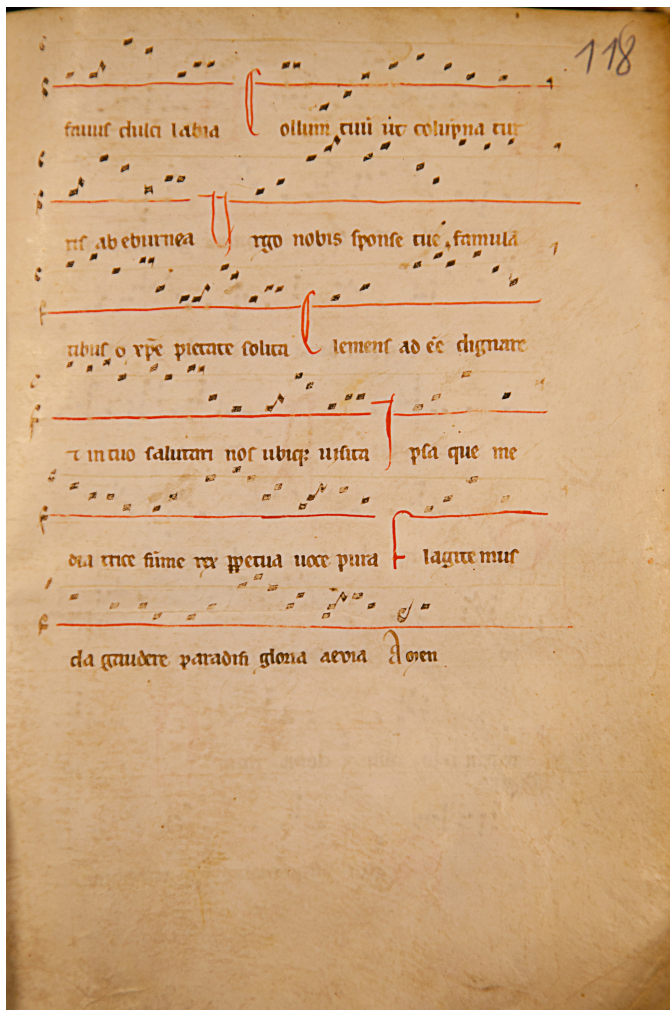 118
fauus dulci labia Collum tuū ut colupna tur
ris ab eburnea Vrgo nobis sponse tue famulā
tibus o xp̄e pietate solita Clemens ad eē dignare
⁊ in tuo salutari nos ubiq; uisita Ipsa que me
dia trice sūme rex ꝑpetua uoce pura flagitemus
da gaudere paradisi gloria aeuia Amen